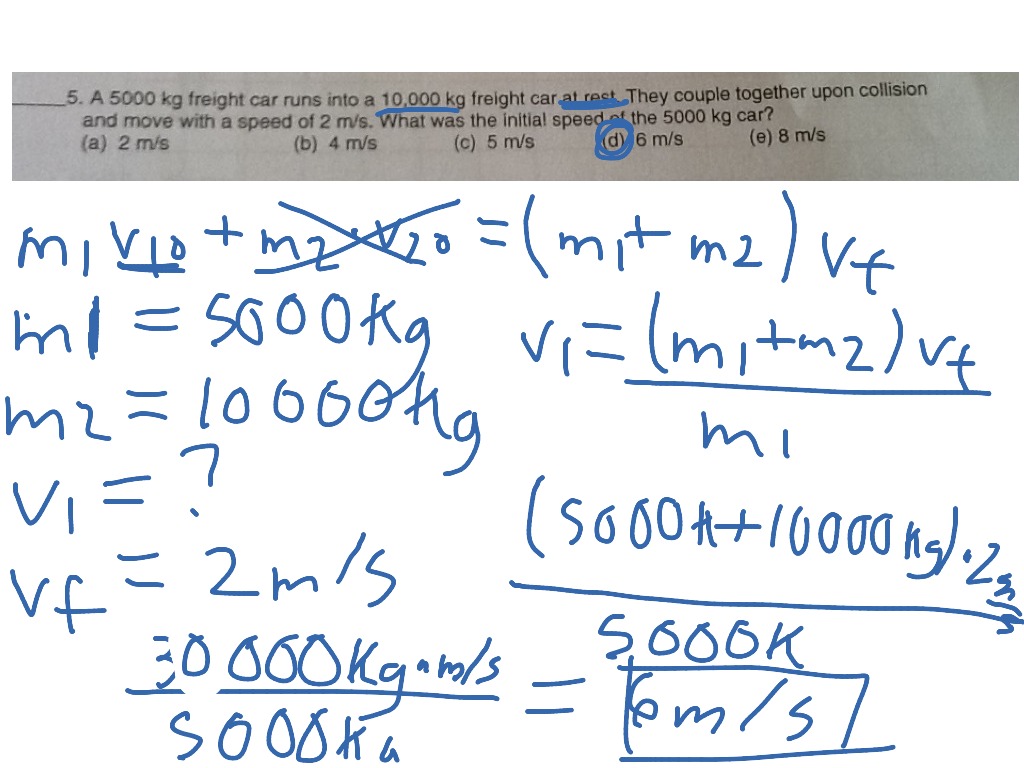 5. A 5000 kg freight car runs into a 10,000 kg freight car at rest. They couple together upon collision
and move with a speed of 2 m/s. What was the initial speed of the 5000 kg car?
(a) 2 m/s (b) 4 m/s (c) 5 m/s (d) 6 m/s (e) 8 m/s
m1 v10 + m2 · v20 = (m1 + m2) vf
m1 = 5000Kg
v1 = (m1 + m2) vf
m1
m2 = 10000kg
v1 = ?
(5000K + 10000Kg) · 2 m/s
5000K
vf = 2m/s
30000Kg·m/s
5000Kg
= 6m/s